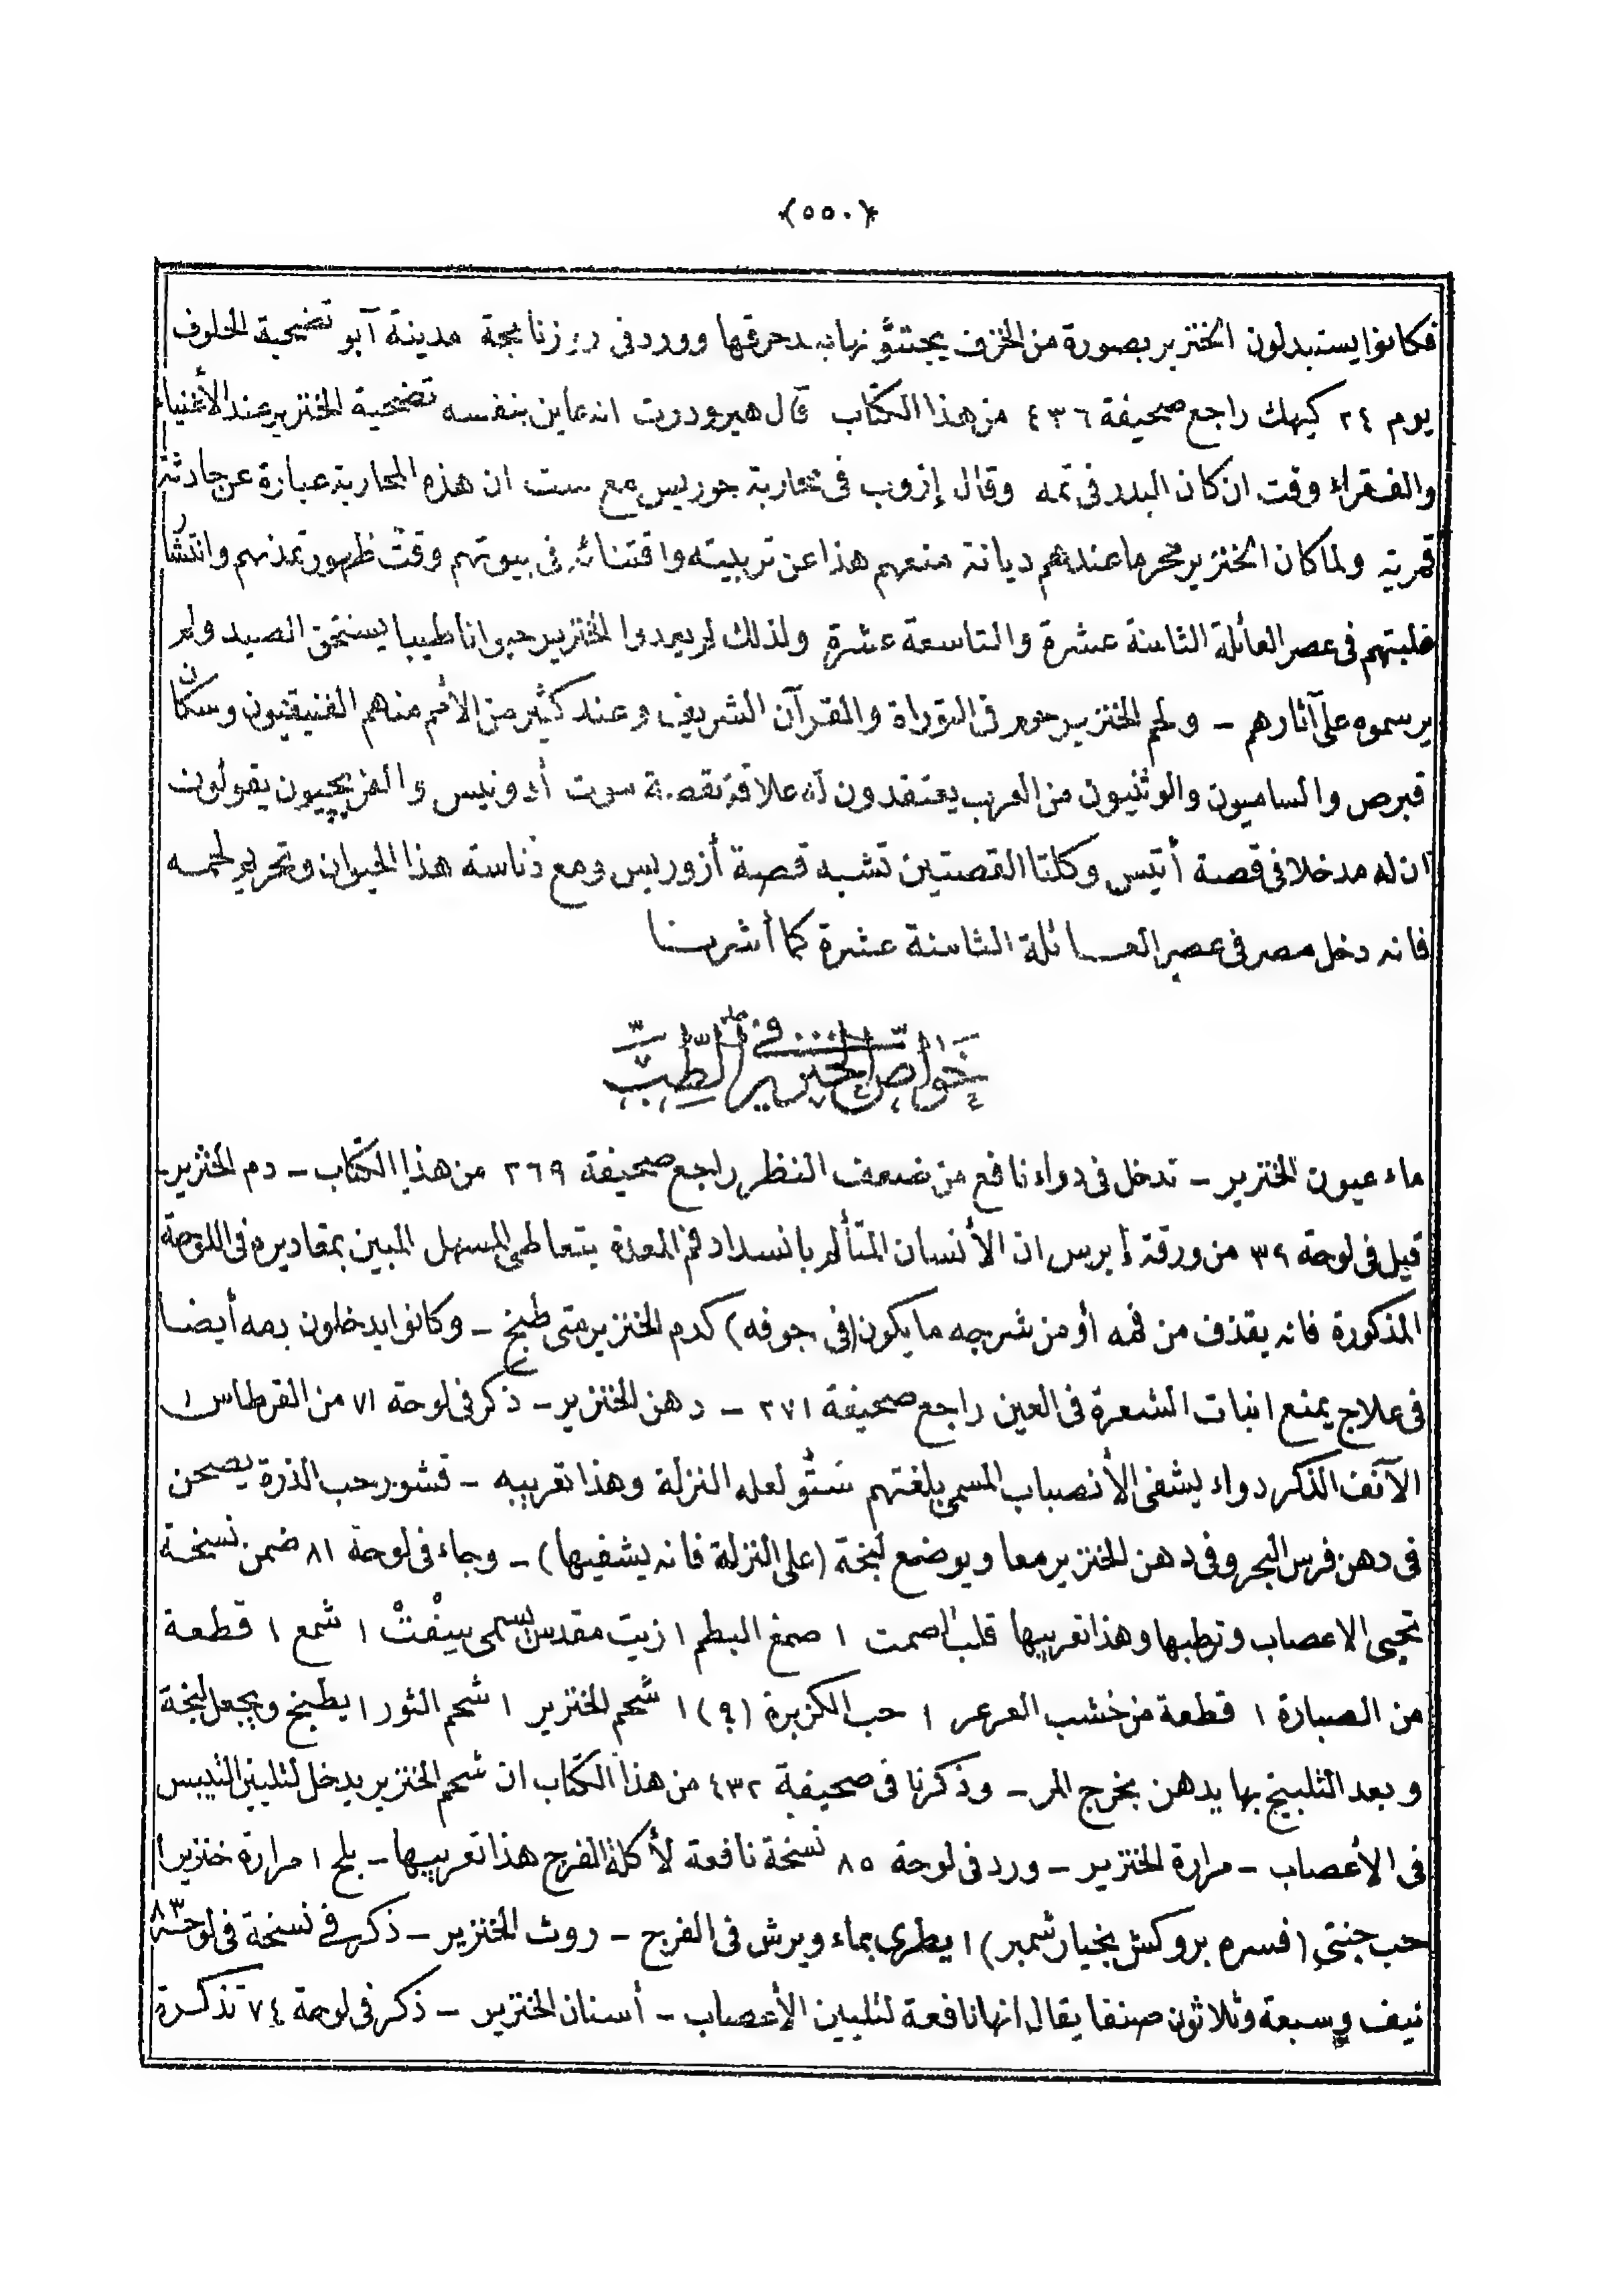 ﴿٥٥٠﴾
فكانوا يستبدلون الخنزير بصورة من الخزف يجتثونها بـدحرقها وورد فى روزنامجة مدينة آبو تضحية الخلوف
يوم ٢٤ كيهك راجع صحيفة ٤٣٦ من هذا الكتاب قال هيرودوت انه عاين بنفسه تضحية الخنزير عند الأغنياء
والفقراء وقت ان كان البدر فى تمه وقال إزوب فى محاربة حوريس مع ست ان هذه المحاربة عبارة عن حادثة
قمرية ولما كان الخنزير محرما عندهم ديانة منعهم هذا عن تربيته واقتنائه فى بيوتهم وقت ظهور تمدنهم وانتشار
غلبتهم فى عصر العائلة الثامنة عشرة والتاسعة عشرة ولذلك لم يعدوا الخنزير حيوانا طيبا يستحق الصيد ولم
يرسموه على آثارهم – ولحم الخنزير حرم فى التوراة والقرآن الشريف وعند كثير من الأمم منهم الفنيقيون وسكان
قبرص والساميون والوثنيون من العرب يعتقدون له علاقة بقصة موت أدونيس والفريجيون يقولون
ان له مدخلا فى قصة أتيس وكلتا القصتين تشبه قصة أزوريس ومع دناسة هذا الحيوان وتحريم لحمه
فانه دخل مصر فى عصر العـائلة الثامنة عشرة كما أشرنا
خواص الخنزير فى الطب
ماء عيون الخنزير – تدخل فى دواء نافع من ضعف النظر راجع صحيفة ٢٦٩ من هذا الكتاب – دم الخنزير –
قيل فى لوحة ٣٩ من ورقة إبرس ان الأنسان المتألم بانسداد فم المعدة يتعاطى المسهل المبين بمقاديره فى اللوحة
المذكورة فانه يقذف من فمه أو من شرجه ما يكون (فى جوفه) كدم الخنزير متى طبخ – وكانوا يدخلون دمه أيضا
فى علاج يمنع انبات الشعرة فى العين راجع صحيفة ٢٧١ – دهن الخنزير – ذكر فى لوحة ٧١ من القرطاس
الآنف الذكر دواء يشفى الأنصباب المسمى بلغتهم ستو لعله النزلة وهذا تعريبه – قشور حب الذرة يصحن
فى دهن فرس البحر وفى دهن الخنزير معا ويوضع لبخة (على النزلة فانه يشفيها) – وجاء فى لوحة ٨١ ضمن نسخة
تحيى الاعصاب وتطبها وهذا تعريبها قلب الصمت ١ صمغ البطم ١ زيت مقدس يسمى سِفْتْ ١ شمع ١ قطعة
من الصبارة ١ قطعة من خشب العرعر ١ حب الكزبرة (؟) ١ شحم الخنزير ١ شحم الثور ١ يطبخ ويجعل لبخة
وبعد التلبيخ بها يدهن بخرج المر – وذكرنا فى صحيفة ٤٣٢ من هذا الكتاب ان شحم الخنزير يدخل لتليين التيبس
فى الأعصاب – مرارة الخنزير – ورد فى لوحة ٨٥ نسخة نافعة لأكلة الفرج هذا تعريبها – بلح ١ مرارة خنزير ١
حب جنتى (فسره بروكش بخيار شمبر) ١ يطرى بماء ويرش فى الفرج – روث الخنزير – ذكر فى نسخة فى لوحة ٨٣
نيف وسبعة وثلاثون صنفا يقال انها نافعة لتليين الأعصاب – أسنان الخنزير – ذكر فى لوحة ٧٤ تذكرة